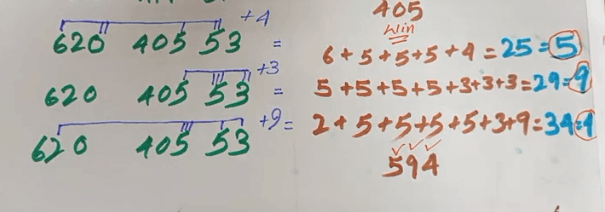 405
Win
620 405 53 +4 = 6+5+5+5+4=25=5
620 405 53 +3 = 5+5+5+5+3+3+3=29=9
620 405 53 +9 = 2+5+5+5+5+3+9=34=4
594